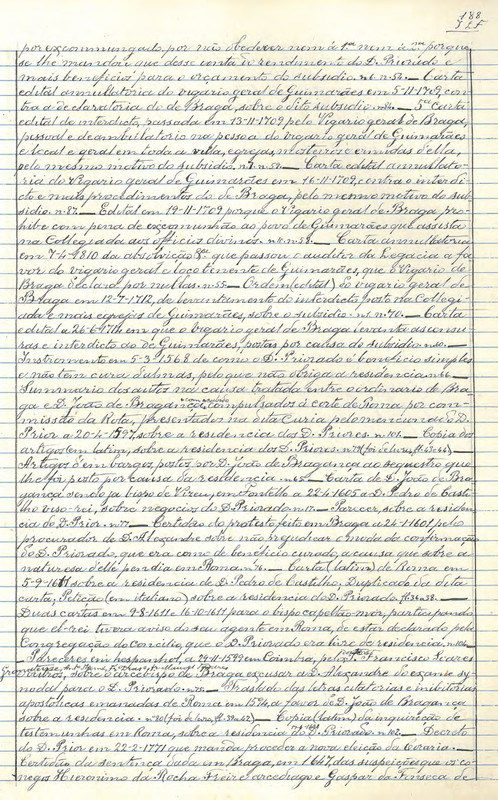 188
por excommungado, por não obedecer nem á 1ª nem á 2ª porque
se lhe mandou que desse conta do rendimento do D. Priorado e
mais beneficios para o orçamento do subsidio. n.6 n.54. — Carta
edital annullatoria do vigario geral de Guimarães em 5-11-1709, con-
tra a declaratoria do de Braga, sobre o dito subsidio. — 5ª Carta
edital de interdicto, passada em 13-11-1709 pelo Vigario geral de Braga,
pessoal e deambulatorio na pessoa do vigario geral de Guimarães
e local e geral em toda a villa, egrejas, mosteiros e ermidas d'ella,
pelo mesmo motivo do subsidio. — Carta edital annullato-
ria do Vigario geral de Guimarães em 16-11-1709, contra o interdi-
cto e mais procedimentos do de Braga, pelo mesmo motivo do sub-
sidio. n.87. — Edital em 19-11-1709 porque o Vigario geral de Braga pro-
hibe com pena de excommunhão ao povo de Guimarães que assista
na Collegiada aos officios divinos. — Carta annullatoria
em da absolvição que passou o auditor da Legacia a fa-
vor do vigario geral e loco tenente de Guimarães, que o Vigario de
Braga declara por nullas. n.55. — Ordem (edital) do vigario geral de
Braga em 12-7-1712, de levantamento do interdicto posto na Collegi-
ada e mais egrejas de Guimarães, sobre o subsidio. n.70. — Carta
edital a em que o vigario geral de Braga levanta as censu-
ras e interdicto ao de Guimarães, postas por causa do subsidio.
Instrumento em 5-3-1568 de como o D. Priorado é beneficio simples
e não tem cura d'almas, pelo que não obriga a residencia.
Summario dos autos na causa tratada entre o ordinario de Bra-
ga e D. João de Bragança, compulsados á corte de Roma por com-
missão da Rota, presentados na dita Curia pelo mencionado D.
Prior a 20-4-1597, sobre a residencia dos D. Priores. n.101. — Copia dos
artigos em latim, sobre a residencia dos D. Priores.
Artigos d'embargos, postos por D. João de Bragança ao sequestro que
lhe foi posto por causa da residencia. n.65. — Carta de D. João de Bra-
gança sendo ja bispo de Vizeu, em Fontello a 22-4-1605 a D. Pedro de Casti-
lho viso-rei, sobre negocios do D. Priorado. — Parecer, sobre a residen-
cia do D. Prior. n.77. — Certidão do protesto feito em Braga a 24-1-1601 pelo
procurador de D. Alexandre sobre não prejudicar o modo da confirmação
do D. Priorado, que era como de beneficio curado, a causa que sobre a
natureza d'elle pendia em Roma. n.76. — Carta (latim) de Roma em
5-9-1611 sobre a residencia de D. Pedro de Castilho; Duplicado da dita
carta; Petição (em italiano) sobre a residencia do D. Priorado.
Duas cartas em 9-8-1611 e 16-10-1611, para o bispo capellão-mór, participando
que el-rei tivera aviso do seu agente em Roma, de estar declarado pela
Congregação do Concilio, que o D. Priorado era livre de residencia. n.104.
Pareceres em hespanhol, a 29-11-1599 em Coimbra, pelo P. Francisco Soares
e outros, sobre o arcebispo de Braga escusar a D. Alexandre do exame sy-
nodal para o D. Priorado. — Traslado das letras citatorias e inhibitorias
apostolicas emanadas de Roma em 1594, a favor de D. João de Bragança
sobre a residencia. — Copia (latim) da inquirição de
testemunhas em Roma, sobre a residencia do D. Priorado. n.102. — Decreto
do D. Prior em 22-2-1771 que manda proceder a nova eleição da
Certidão da sentença dada em Braga, em 1647, das suspeições que os co-
negos Hieronimo da Rocha Freire arcediago e Gaspar da Fonseca de